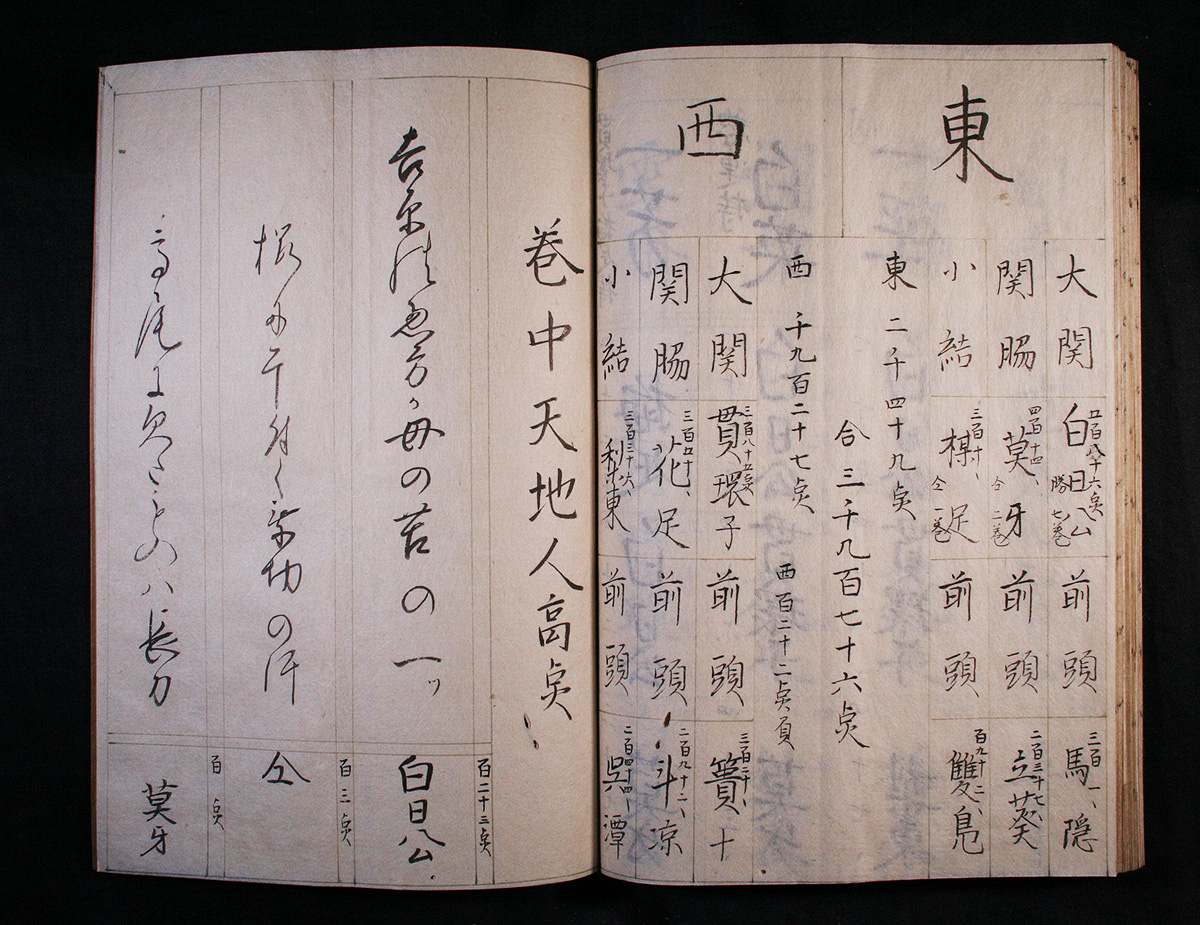 東
大関
白日公
五百八十六点
勝七巻
前頭
馬隠
三百一、
関脇
莫牙
四百十四、
仝二巻
前頭
立葵
二百三十七、
小結
楳足
三百十、
仝一巻
前頭
雙鳧
百九十二、
東 二千四十九点
合三千九百七十六点
西 千九百二十七点
西百二十二点負
西
大関
貫環子
三百八十五点
前頭
簣十
三百二十、
関脇
花足
三百五十、
前頭
斗凉
二百九十二、
小結
梨東
三百三十六、
前頭
呉潭
二百四十四、
巻中天地人高点
百二十三点
母の苦の一ッ
白日公
百三点
の汗
仝
百点
ハ長刀
莫牙